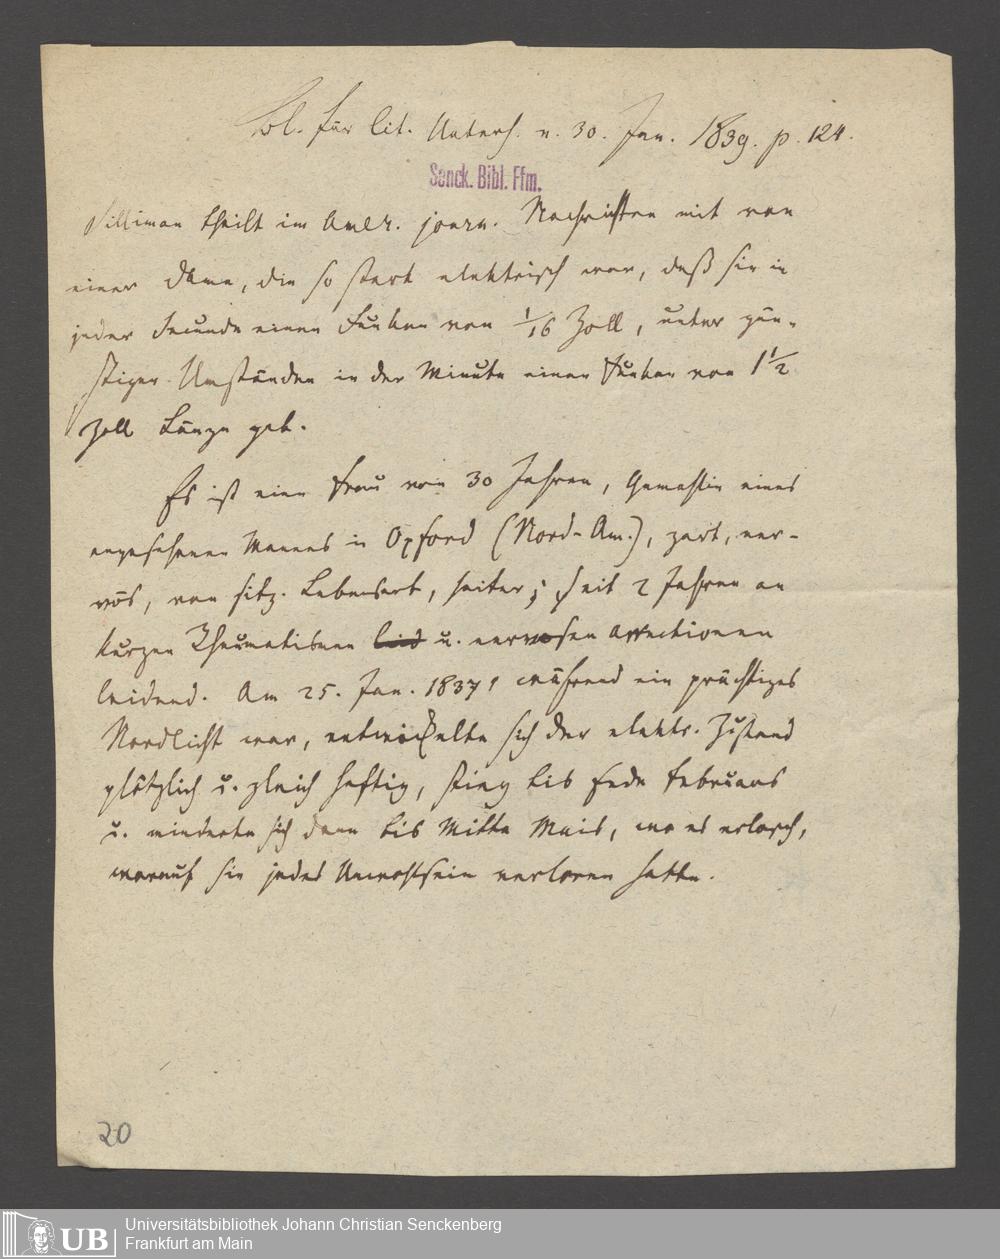 Bl. für lit. Unterh. v. 30. Jan. 1839. p. 124.
Senck. Bibl. Ffm.
Silliman theilt im Amer. journ. Nachrichten mit von
einer Dame, die so stark elektrisch war, daß sie in
jeder Secunde einen Funken von 1/16 Zoll, unter gün-
stigen Umständen in der Minute einen Funken von 1 1/2
Zoll Länge gab.
Es ist eine Frau von 30 Jahren, Gemahlin eines
angesehenen Mannes in Oxford (Nord-Am.), zart, ner-
vös, von sitz. Lebensart, heiter; seit 2 Jahren an
kurzen Rheumatismen leid u. nervosen Affectionen
leidend. Am 25. Jan. 1837, während ein prächtiges
Nordlicht war, entwickelte sich der elektr. Zustand
plötzlich u. gleich heftig, stieg bis Ende Februars
u. minderte sich dann bis Mitte Mais, wo es erlosch,
worauf sie jedes Unwohlsein verloren hatte.
20
UB
Universitätsbibliothek Johann Christian Senckenberg
Frankfurt am Main